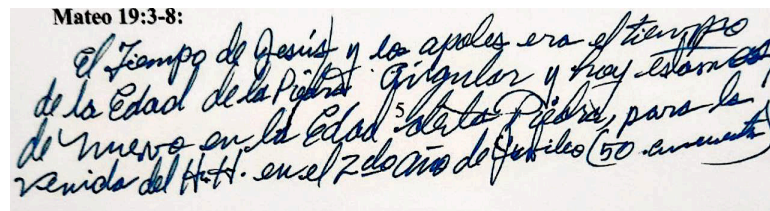 Mateo 19:3-8:
El Tiempo de Jesús y los apoles era el tiempo
de la Edad de la Piedra Angular y hoy estamos
de nuevo en la Edad de la Piedra, para la
5
venida del H.H. en el 2do año de Jubileo (50 cincuenta)